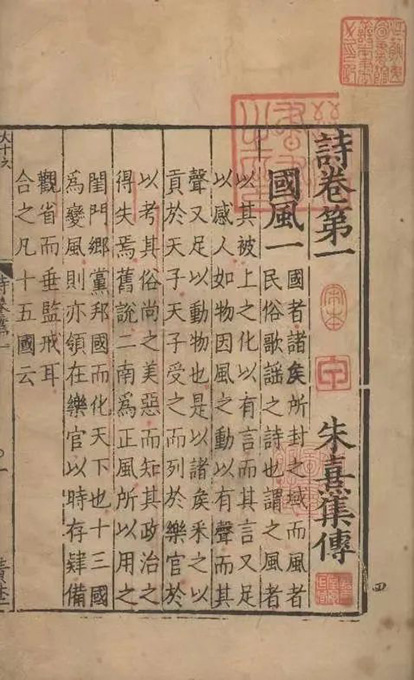 詩卷第一 朱熹集傳
國風一
國者諸矦所封之域而風者
民俗歌謠之詩也謂之風者
以其被上之化以有言而其言又足
以感人如物因風之動以有聲而其
聲又足以動物也是以諸矦采之以
貢於天子天子受之而列於樂官於
以考其俗尚之美惡而知其政治之
得失焉舊說二南爲正風所以用之
閨門鄉黨邦國而化天下也十三國
爲變風則亦領在樂官以時存肄備
觀省而垂監戒耳
合之凡十五國云